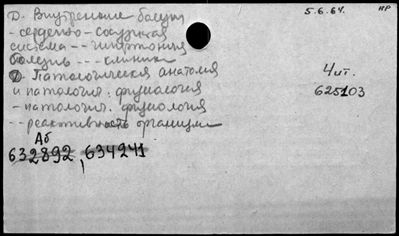 Д. Внутренние болезни
- сердечно-сосудистая
система -- гипертония
болезнь --- клиника
Д. Патологическая анатомия
и патология. физиология
- патология. физиология
-- реактивность организма
Аб
632892, 634241
5.6.64.
НР
4 ит.
625103